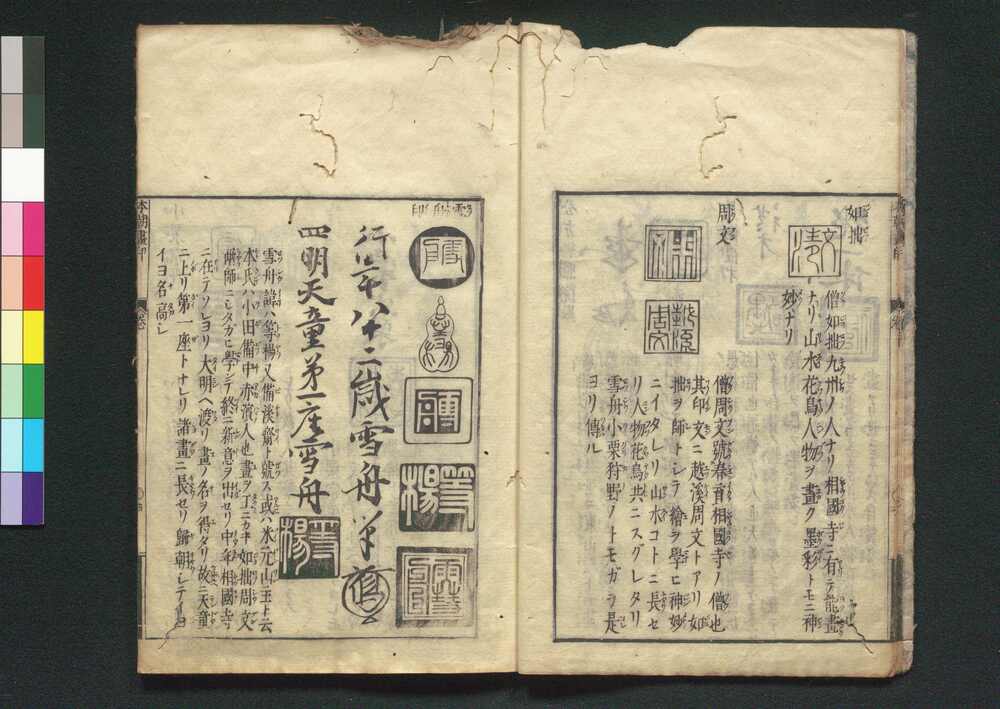 如拙
僧如拙九州ノ人ナリ相國寺ニ有テ龍畫
ナリ山水花鳥人物ヲ畫ク墨彩トモニ神
妙ナリ
周文
越溪
周文
僧周文號春育相國寺ノ僧也
其印文ニ越溪周文トアリ如
拙ヲ師トシテ繪ヲ學ヒ神妙
ニイタレリ山水コトニ長セ
リ人物花鳥共ニスグレタリ
雪舟小栗狩野ノトモガラ是
ヨリ傳ル
雪舟印
等楊
行年八十二歳雪舟筆
四明天童第一座雪舟
等楊
雪舟諱ハ等楊又備溪齋ト號ス或ハ米元山主ト云
本氏ハ小田備中赤濱人也畫ヲ工ニカキ如拙周文
ヲ師ニシタガヒ學ンテ終ニ新意ヲ出セリ中年相國寺
ニ在テソレヨリ大明ヘ渡リ畫ノ名ヲ得タリ故ニ天童
ニ上リ第一座トナレリ諸畫ニ長セリ歸朝シテイヨ
イヨ名高シ
本朝畫印
卷